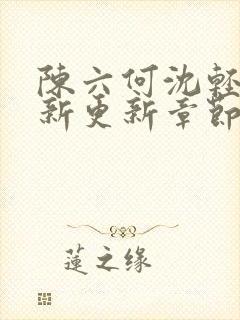 陳六何沈輕
新更新章節
蓮之缘